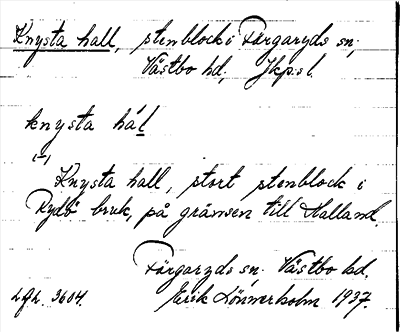 Knysta hall, stenblock i Färgaryds sn,
Västbo hd, Jkp:s l.
knysta hál
Knysta hall, stort stenblock i
Rydö bruk, på gränsen till Halland.
Färgaryds sn. Västbo hd.
Lgh. 3604. Erik Lönnerholm 1937.